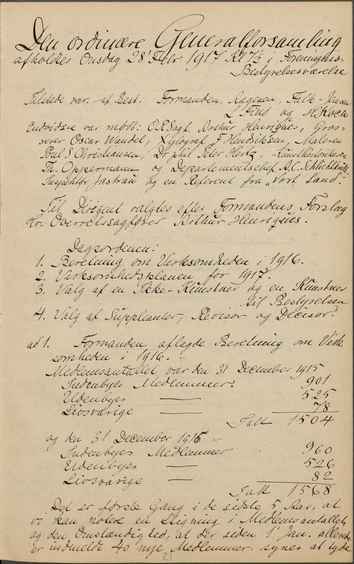 Den ordinære Generalforsamling
afholdtes Onsdag 28' Febr 1917 Kl 7½ i Foreningens
Bestyrelsesværelse
Tilstede var af Best. Formanden
og H. Koch
Endvidere var mødt: O.R.Sagf. Arthur Henriques, Gros-
serer Oscar Wandel, Xylograf F. Hendriksen, Maleren
Poul S. Christiansen, Dr. phil. Peter Hertz
Th. Oppermann og Departementschef
og en Referent fra "Vort Land"
Til Dirigent valgtes efter Formandens Forslag
Hr. Overretssagfører Arthur Henriques.
Dagsordenen:
1. Beretning om Virksomheden i 1916.
2. Virksomhedsplanen for 1917.
3. Valg af en Ikke-Kunstner og en Kunstner
til Bestyrelsen
4. Valg af Suppleanter, Revisor og Decisor.
ad 1. Formanden aflagde Beretning om Virk-
somheden i 1916.
Medlemsantallet var den 31 December 1915
Indenbyes Medlemmer 901
Udenbyes — 525
Livsvarige — 78
Ialt 1504
og den 31 December 1916
Indenbyes Medlemmer 960
Udenbyes — 526
Livsvarige — 82
Ialt 1568
Det er første Gang i de sidste 5 Aar, at
vi kan notere en Stigning i Medlemsantallet
og den Omstændighed, at der siden 1 Jan. allerede
er indmeldt 40 nye Medlemmer synes at tyde